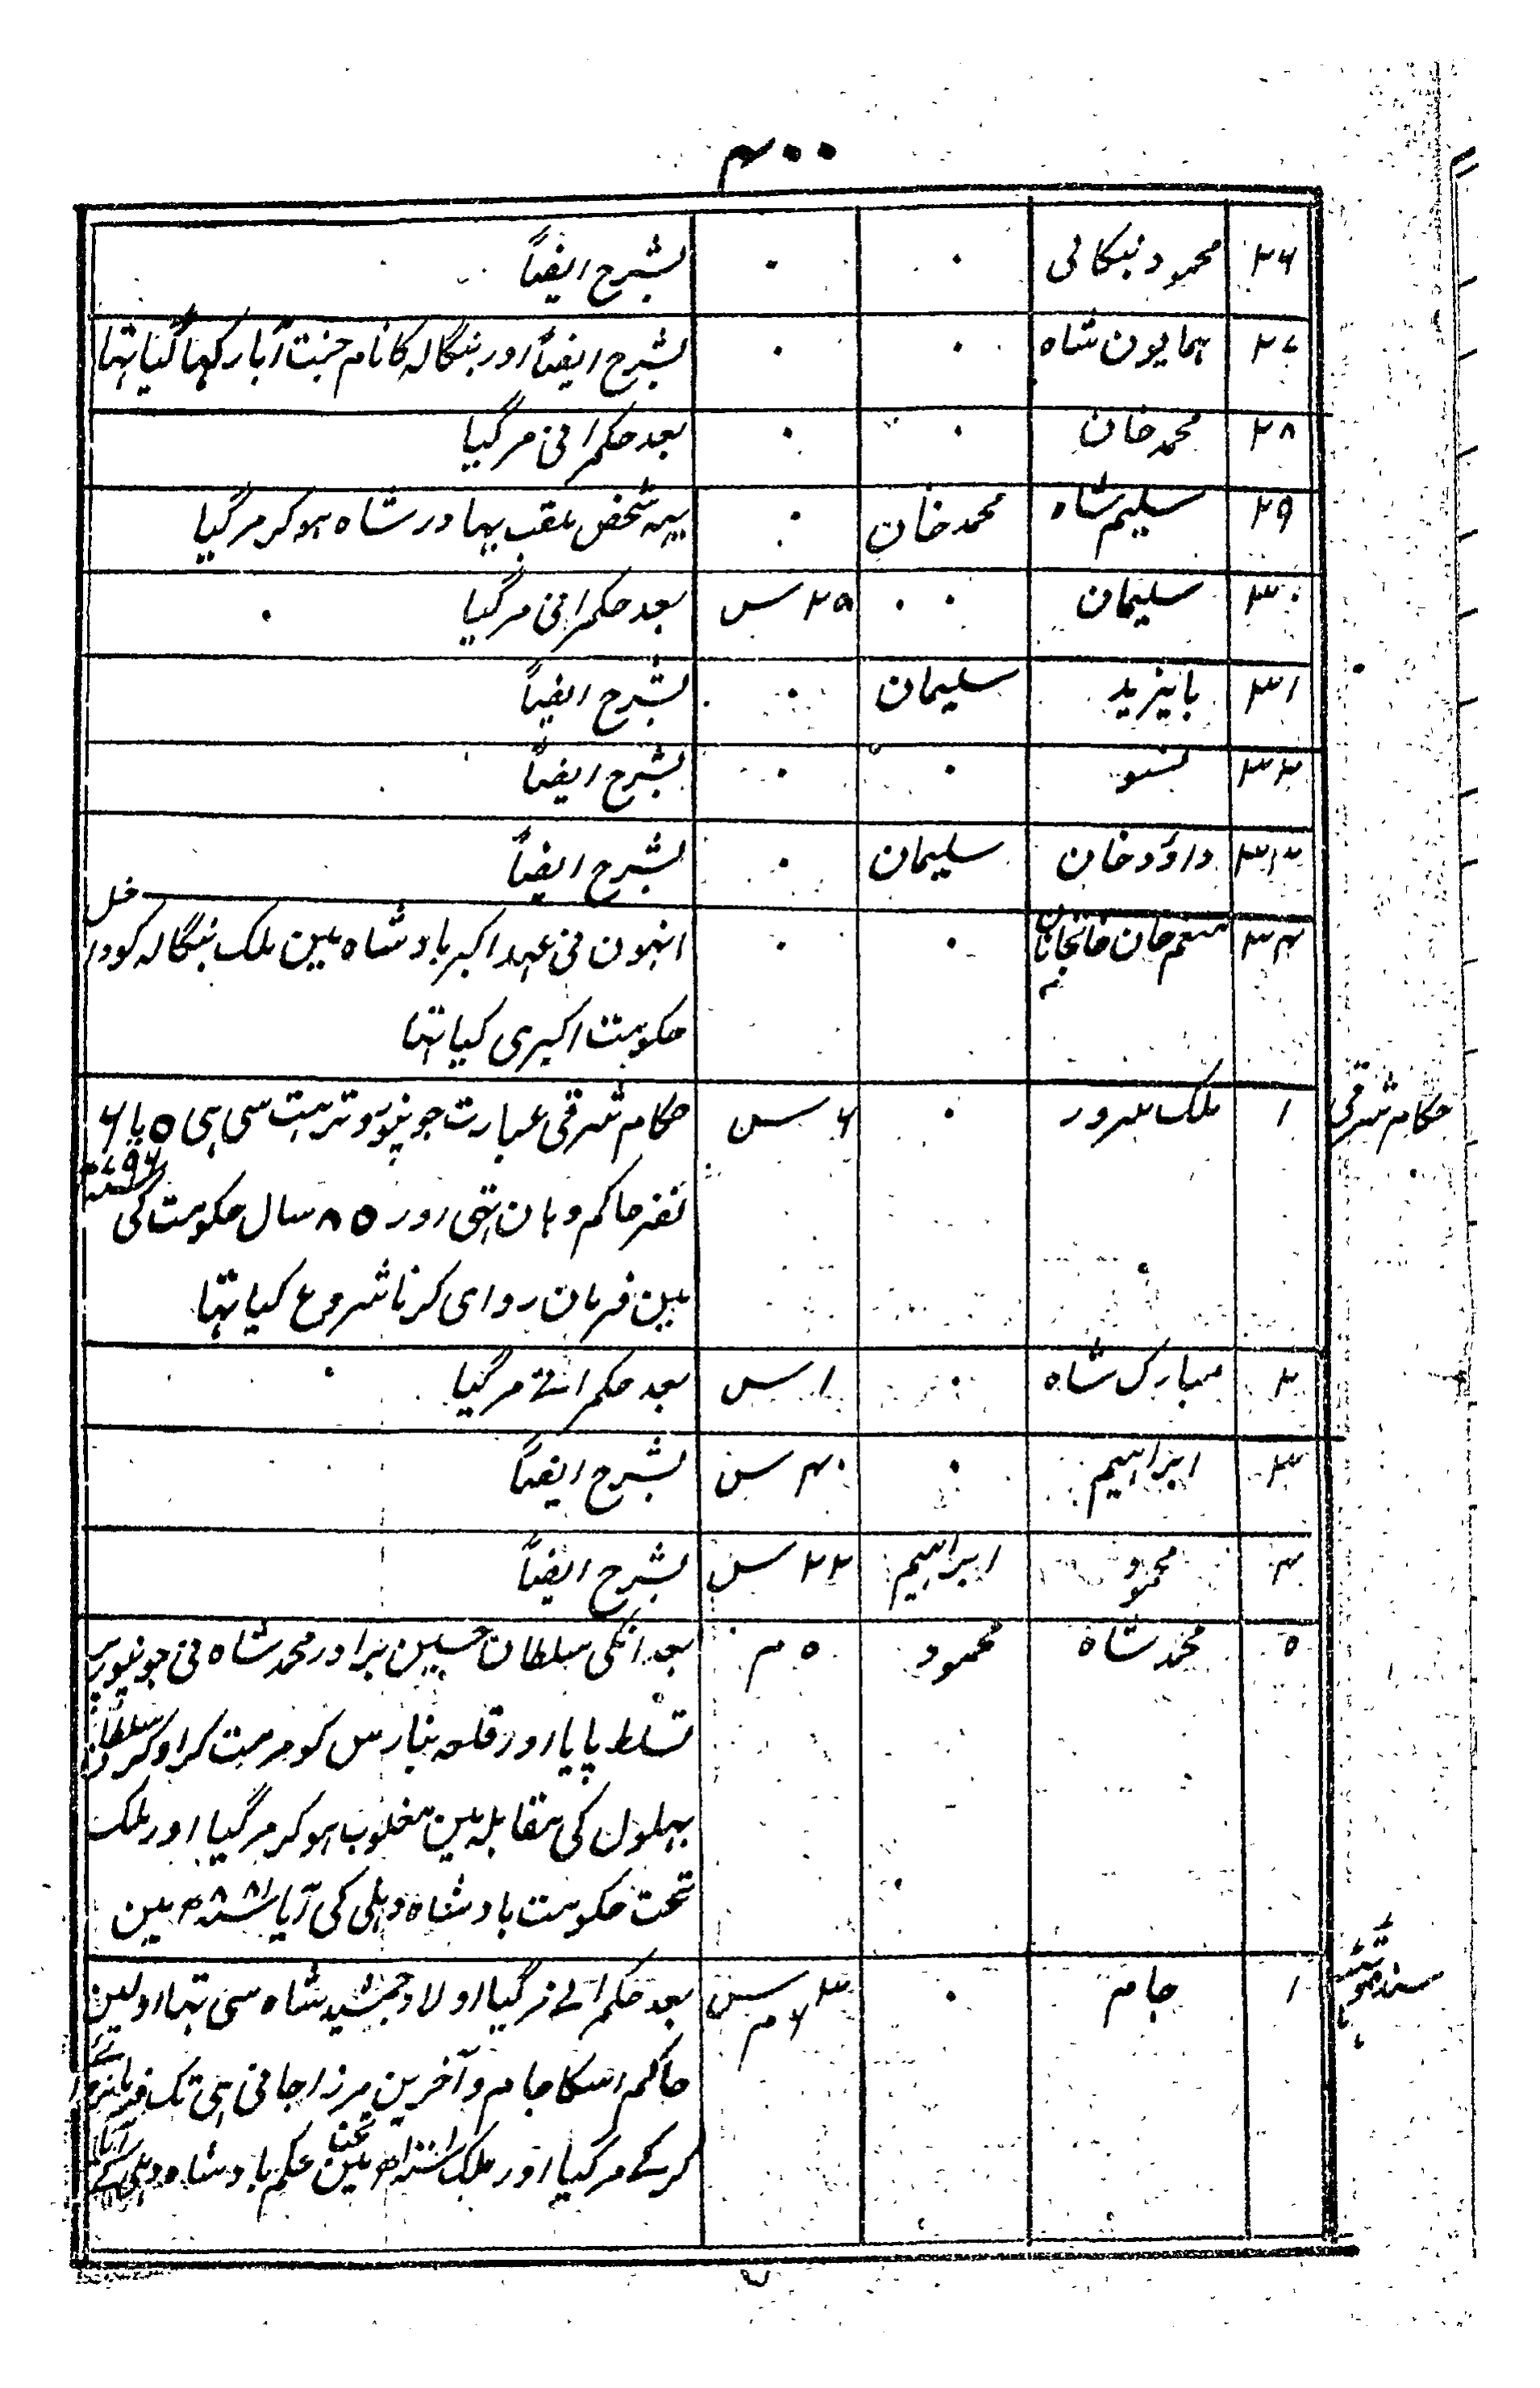 ۴۰۰
۲۶ محمود بنکالی ۰ ۰ بشرح ایضاً
۲۷ ہمایون شاہ ۰ ۰ بشرح ایضاً اور بنگالہ کا نام جنت آباد رکہا گیا تہا
۲۸ محمد خان ۰ ۰ بعد حکمرانی مر گیا
۲۹ سلیم شاہ محمد خان ۰ یہہ شخص ملقب بہادر شاہ ہو کر مر گیا
۳۰ سلیمان ۰ ۲۵ س بعد حکمرانی مر گیا
۳۱ بایزید سلیمان ۰ بشرح ایضاً
۳۲ ۰ ۰ بشرح ایضاً
۳۳ داؤد خان سلیمان ۰ بشرح ایضاً
۳۴ منعم خان خانخانان ۰ ۰ انہون نی عہد اکبر بادشاہ مین ملک بنگالہ کو داخل
حکومت اکبری کیا تہا
حکام شرقی
۱ ملک سرور ۰ ۶ س حکام شرقی عبارت جونپور و ترہت سی ہی ۵ یا ۶
نفر حاکم وہان تہی اور ۸۵ سال حکومت کی ۷۹۶
مین فرمان روای کرنا شروع کیا تہا
۲ مبارک شاہ ۰ ۱ س بعد حکمرانے مر گیا
۳ ابراہیم ۰ ۴۰ س بشرح ایضاً
۴ محمود ابراہیم ۲۲ س بشرح ایضاً
۵ محمد شاہ محمود ۵ م بعد انکی سلطان حسین برادر محمد شاہ نی جونپور پر
تسلط پایا اور قلعہ بنارس کو مرمت کرا کر سلطان
بہلول کی مقابلہ مین مغلوب ہو کر مر گیا اور ملک
تحت حکومت بادشاہ دہلی کی آیا ۸۸۱ مین
۱ جام ۰ ۳ س ۶ م بعد حکمرانے مر گیا اولاد جمشید شاہ سی تہا اولین
حاکم اسکا جام و آخرین مرزا جانی ہی تک
کر کے مر گیا اور ملک مین تحت حکم بادشاہ دہلی کے آیا